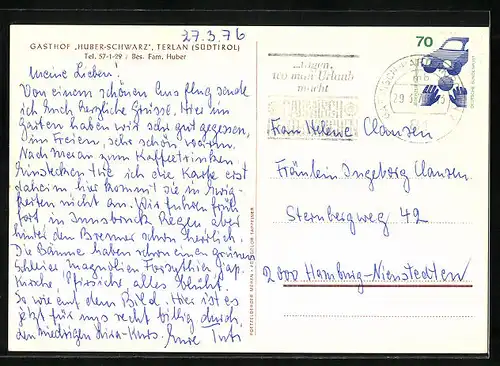 27.3.76
GASTHOF „HUBER-SCHWARZ", TERLAN (SÜDTIROL)
Tel. 57-1-29 / Bes. Fam. Huber
Meine Lieben!
Von einem schönen Ausflug sende
ich Euch herzliche Grüsse. Hier im
Garten haben wir sehr gut gegessen,
im Freien, sehr schön warm.
Nach Meran zum Kaffeetrinken.
Einstecken tue ich die Karte erst
daheim hier kommt sie in Ewig-
keiten nicht an. Wir fuhren früh
fort in Innsbruck Regen aber
hinter dem Brenner schon herrlich.
Die Bäume haben schon einen grünen
Schleier Magnolien Forsythien Jap.
Kirsche, Pfirsiche, alles blüht.
So wie auf dem Bild. Hier ist es
jetzt für uns recht billig durch
den niedrigen Lira-Kurs. Eure
70
wo man Urlaub
macht
Frau Helene Clausen
Fräulein Ingeborg Clausen
Sternbergweg 42
2000 Hamburg-Nienstedten